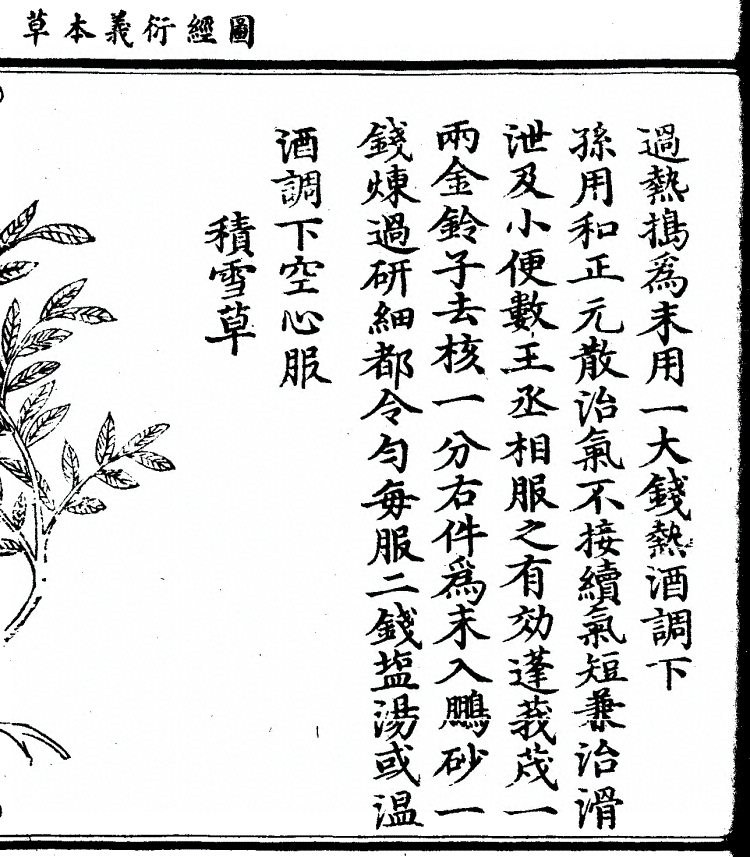 圖經衍義本草
過熱搗爲末用一大錢熱酒調下
孫用和正元散治氣不接續氣短兼治滑
泄及小便數王丞相服之有効蓬莪茂一
兩金鈴子去核一分右件爲末入鵬砂一
錢煉過研細都令勻每服二錢塩湯或温
酒調下空心服
積雪草